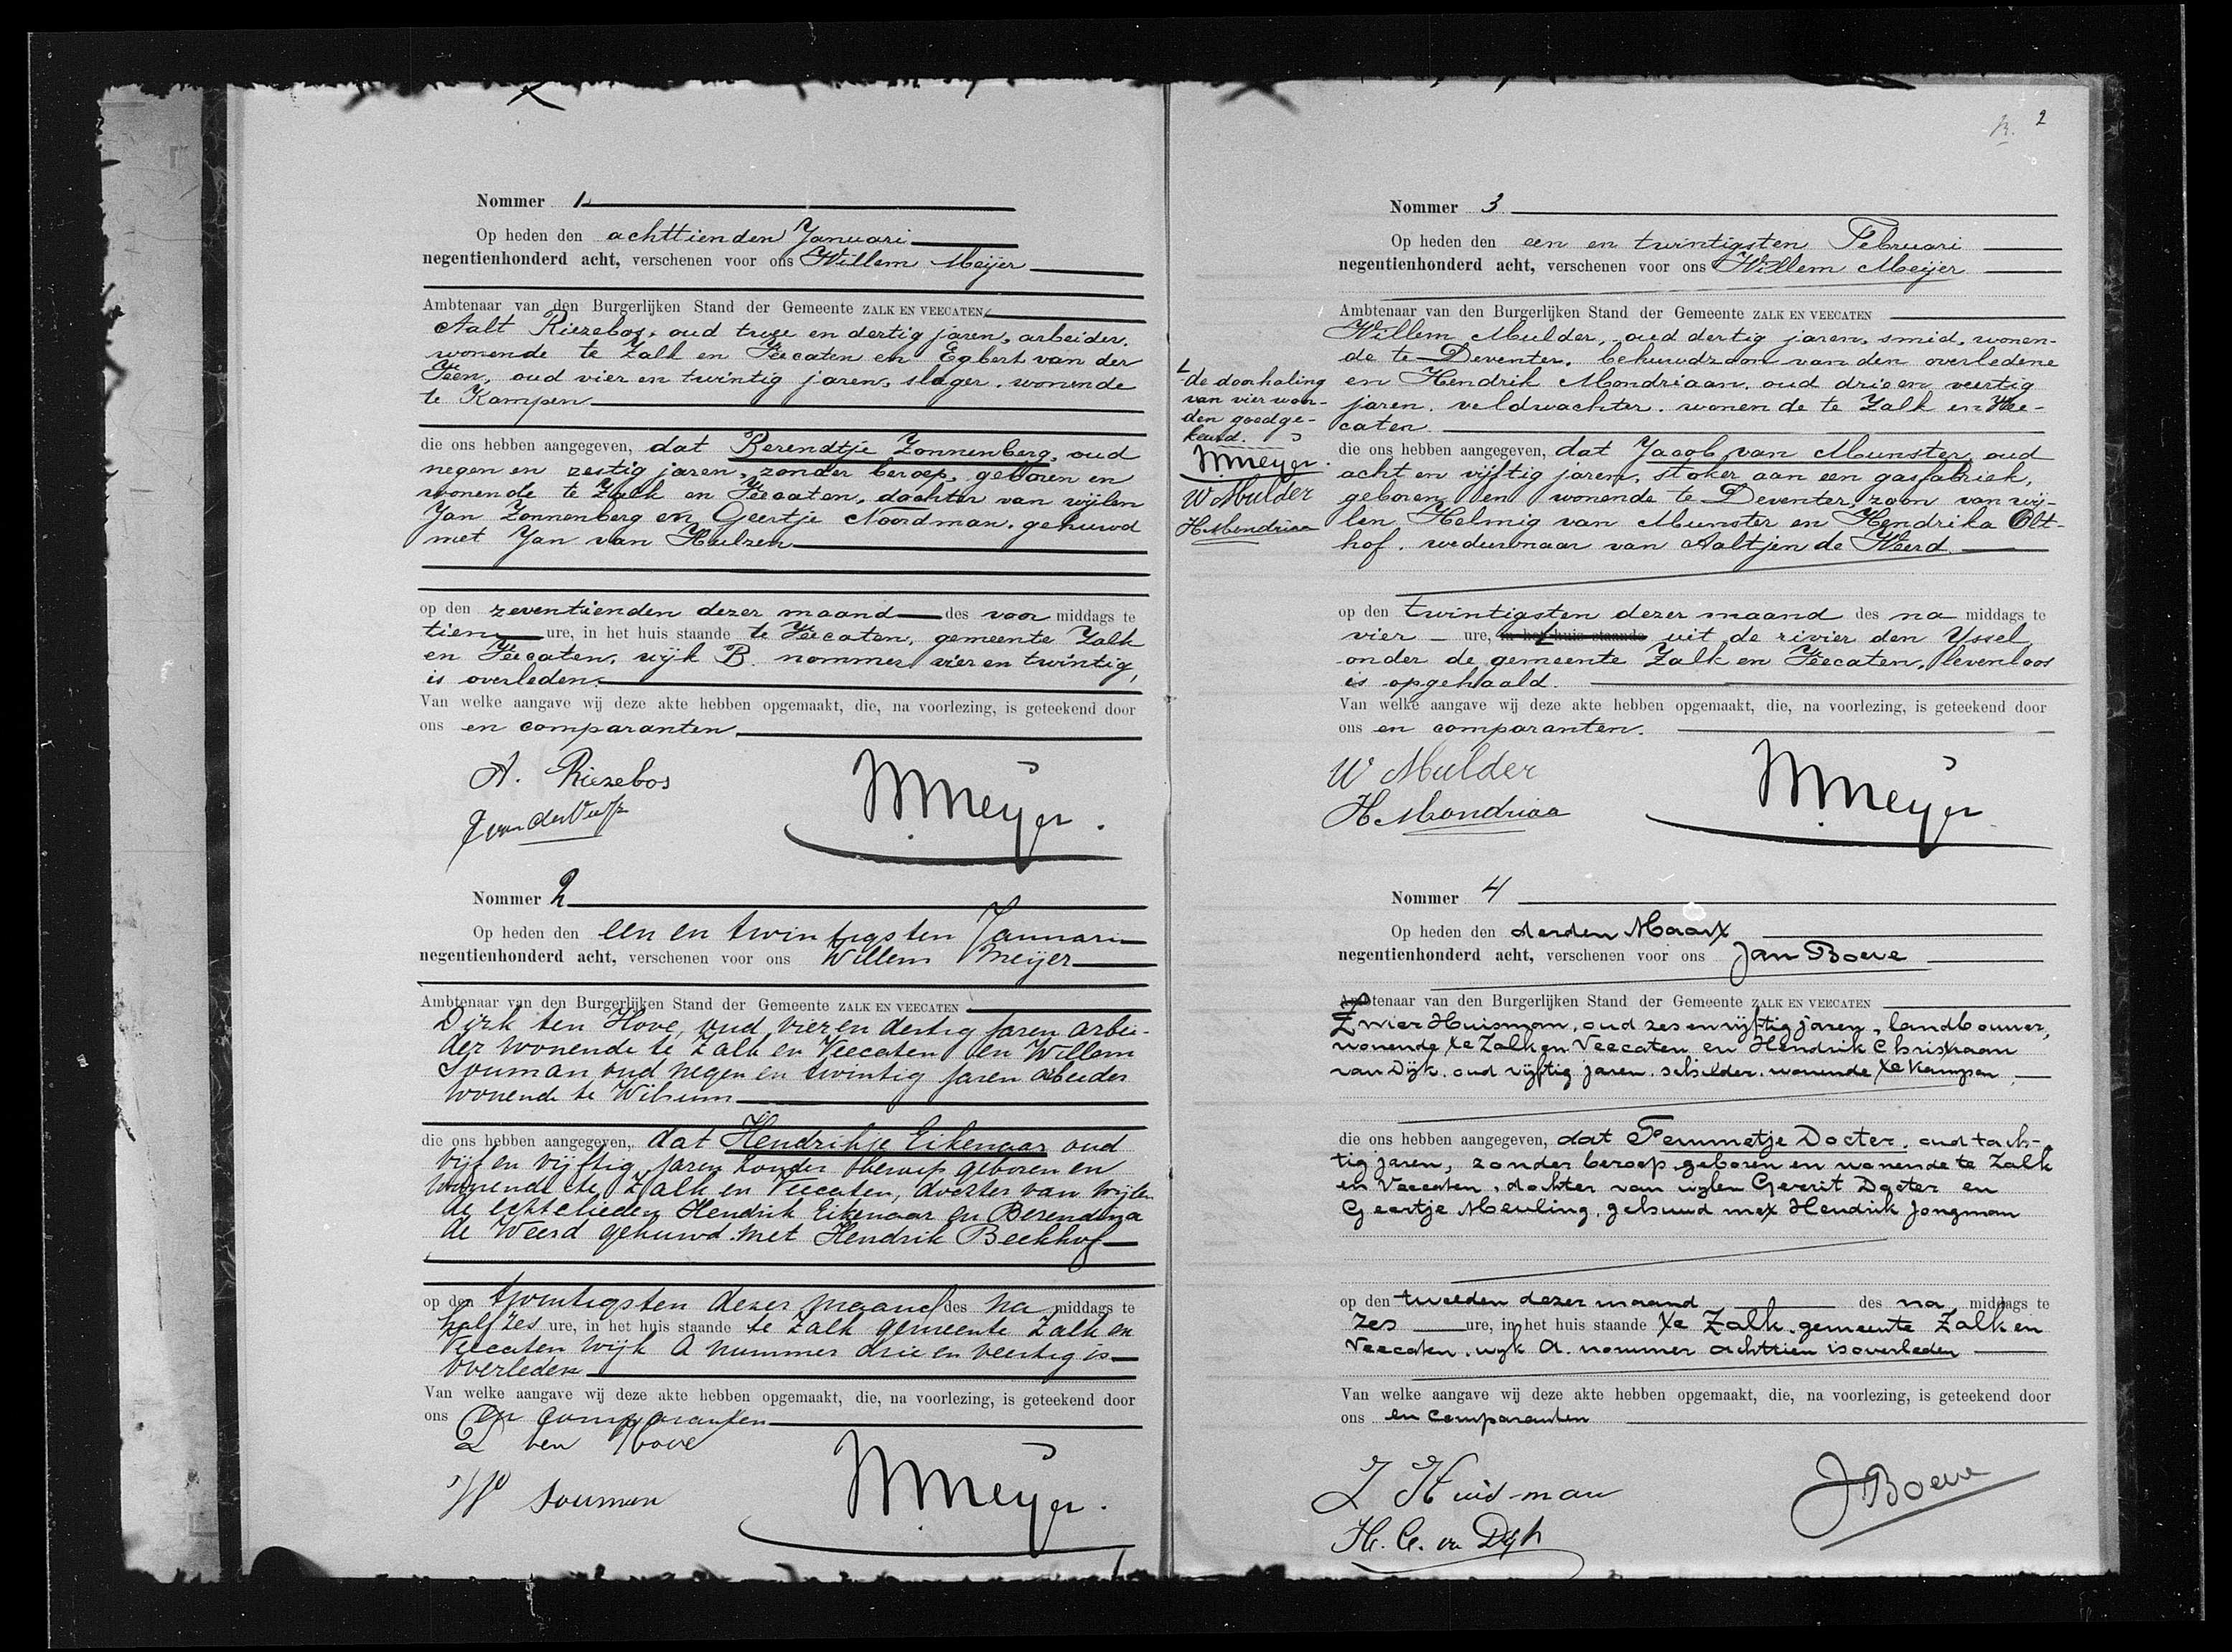 Nommer 1
Op heden den achttienden Januari
negentienhonderd acht, verschenen voor ons Willem Meijer
Ambtenaar van den Burgerlijken Stand der Gemeente ZALK EN VEECATEN
Aalt Riezebos, oud twee en dertig jaren, arbeider,
wonende te Zalk en Veecaten en Egbert van der
Veen, oud vier en twintig jaren, slager, wonende
te Kampen
die ons hebben aangegeven, dat Berendtje Zonnenberg, oud
negen en zestig jaren, zonder beroep, geboren en
wonende te Zalk en Veecaten, dochter van wijlen
Jan Zonnenberg en Geertje Noordman, gehuwd
met Jan van Hulzen
op den zeventienden dezer maand des voor middags te
tien ure, in het huis staande te Veecaten, gemeente Zalk
en Veecaten, wijk B. nommer vier en twintig,
is overleden.
Van welke aangave wij deze akte hebben opgemaakt, die, na voorlezing, is geteekend door
ons en comparanten.
A. Riezebos
WMeyer.
Nommer 2
Op heden den een en twintigsten Januari
negentienhonderd acht, verschenen voor ons Willem Meijer
Ambtenaar van den Burgerlijken Stand der Gemeente ZALK EN VEECATEN
Dirk ten Hove, oud vier en dertig jaren arbei-
der wonende te Zalk en Veecaten en Willem
Souman oud negen en twintig jaren arbeider
wonende te Wilsum
die ons hebben aangegeven, dat Hendrikje Eikenaar oud
vijf en vijftig jaren zonder beroep geboren en
wonende te Zalk en Veecaten, dochter van wijlen
de echtelieden Hendrik Eikenaar en Berendina
de Weerd gehuwd met Hendrik Beekhof
op den twintigsten dezer maand des na middags te
half zes ure, in het huis staande te Zalk gemeente Zalk en
Veecaten wijk A nummer drie en veertig is
overleden
Van welke aangave wij deze akte hebben opgemaakt, die, na voorlezing, is geteekend door
ons en comparanten
D ten Hove
W Souman
WMeyer.
2
Nommer 3
Op heden den een en twintigsten Februari
negentienhonderd acht, verschenen voor ons Willem Meijer
Ambtenaar van den Burgerlijken Stand der Gemeente ZALK EN VEECATEN
Willem Mulder, oud dertig jaren, smid, wonen-
de te Deventer, behuwdzoon van den overledene
en Hendrik Mondriaan, oud drie en veertig
jaren, veldwachter, wonende te Zalk en Vee-
caten
die ons hebben aangegeven, dat Jacob van Munster, oud
acht en vijftig jaren, stoker aan een gasfabriek,
geboren en wonende te Deventer, zoon van wij-
len Helmig van Munster en Hendrika Olt-
hof, weduwnaar van Aaltjen de Weerd
op den twintigsten dezer maand des na middags te
vier ure, in het huis staande uit de rivier den Yssel
onder de gemeente Zalk en Veecaten, levenloos
is opgehaald.
Van welke aangave wij deze akte hebben opgemaakt, die, na voorlezing, is geteekend door
ons en comparanten.
W Mulder
H Mondriaa
WMeyer
de doorhaling
van vier woor-
den goedge-
keurd.
WMeyer.
W Mulder
H Mondriaa
Nommer 4
Op heden den derden Maart
negentienhonderd acht, verschenen voor ons Jan Boeve
Ambtenaar van den Burgerlijken Stand der Gemeente ZALK EN VEECATEN
Zwier Huisman, oud zes en vijftig jaren, landbouwer,
wonende te Zalk en Veecaten en Hendrik Christiaan
van Dijk, oud vijftig jaren, schilder, wonende te Kampen
die ons hebben aangegeven, dat Femmetje Docter, oud tach-
tig jaren, zonder beroep geboren en wonende te Zalk
en Veecaten, dochter van wijlen Gerrit Docter en
Geertje Meuling, gehuwd met Hendrik Jongman
op den tweeden dezer maand des na middags te
zes ure, in het huis staande te Zalk, gemeente Zalk en
Veecaten, wijk A. nommer achttien is overleden
Van welke aangave wij deze akte hebben opgemaakt, die, na voorlezing, is geteekend door
ons en comparanten
Z Huisman
H. C. v Dijk
J Boeve